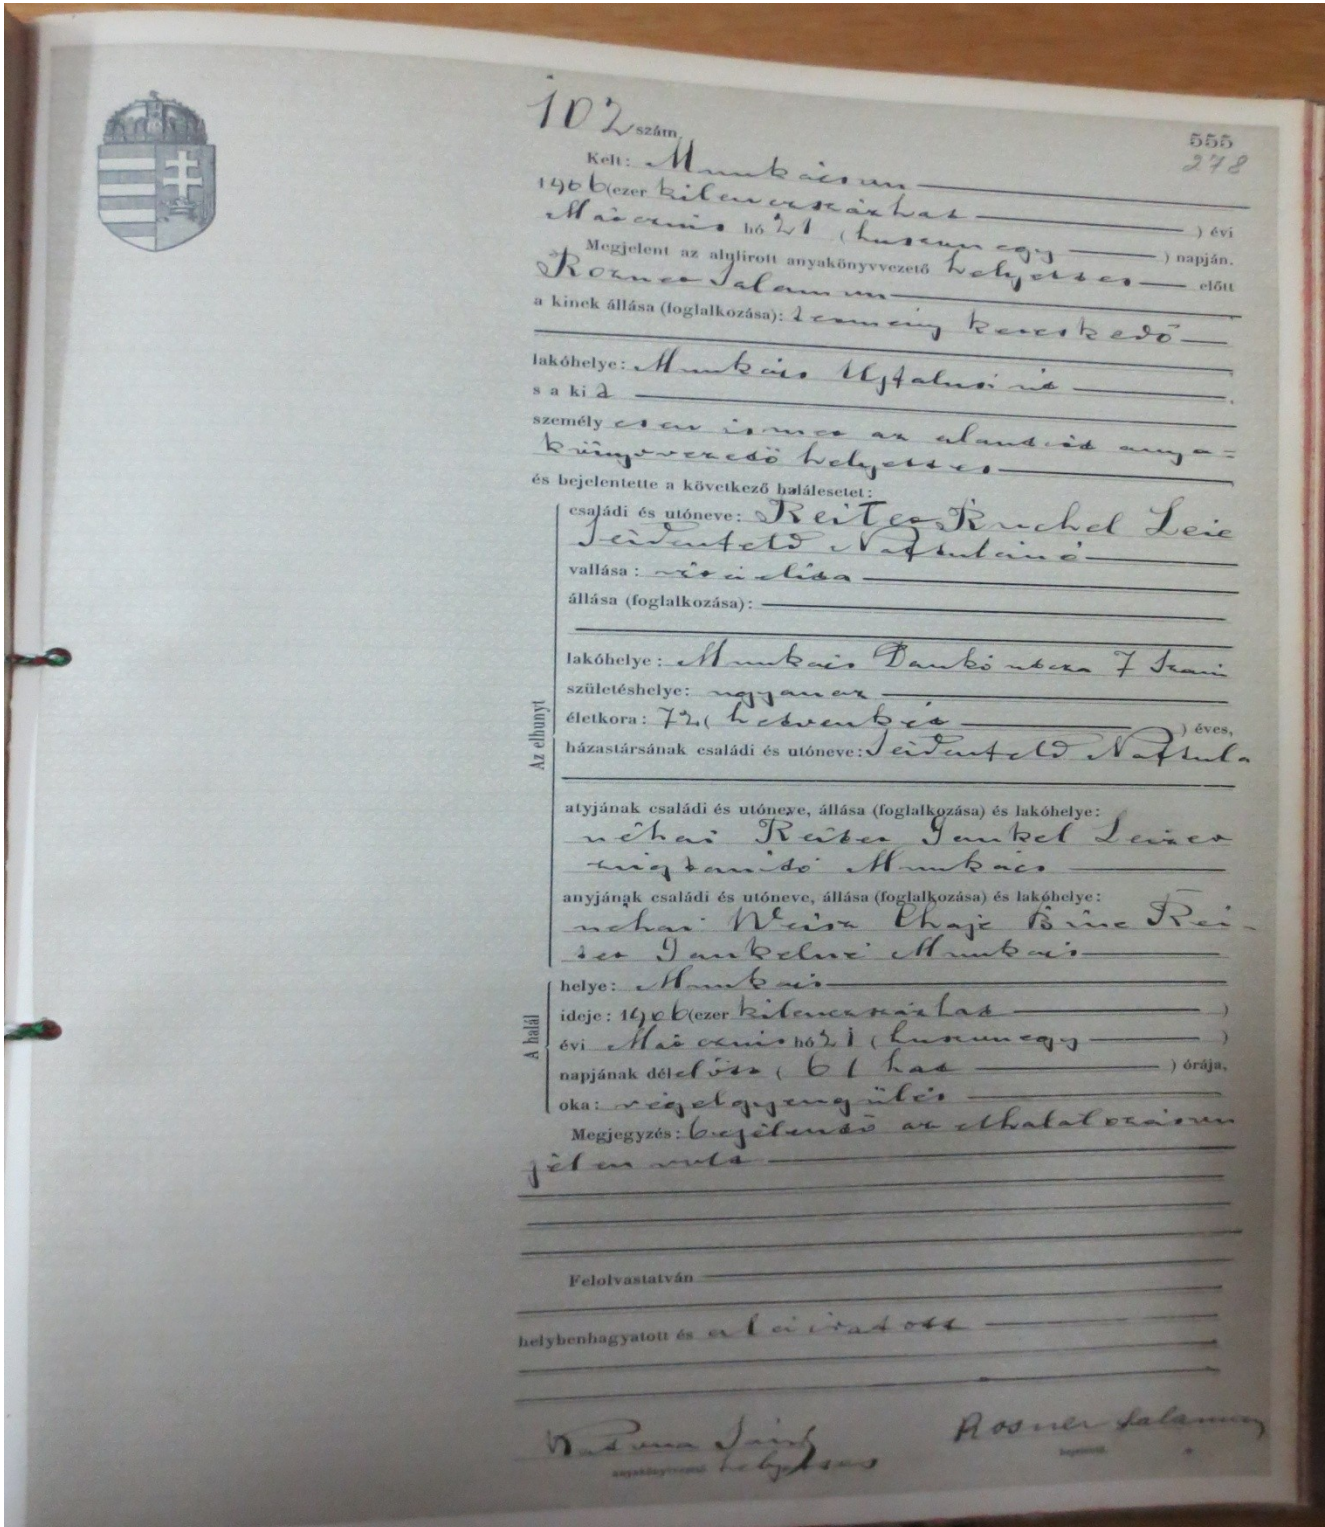 102 szám.
555
278
Kelt: Munkácson
1906 (ezer kilenczszázhat ) évi
Márczius hó 21 (huszonegy ) napján.
Megjelent az alulirott anyakönyvvezető helyettes előtt
Rozner Salamon
a kinek állása (foglalkozása): termény kereskedő
lakóhelye: Munkács Ujfalusi út
s a kit
személyesen ismer az alantirt anya=
könyvvezető helyettes
és bejelentette a következő halálesetet:
családi és utóneve: Reiter Ruchel Leie
Seidenfeld Naftuláné
vallása: izraelita
állása (foglalkozása):
lakóhelye: Munkács Dankó utcza 7 szám
születéshelye: ugyanaz
életkora: 72 (hetvenkét ) éves,
házastársának családi és utóneve: Seidenfeld Naftula
Az elhunyt
atyjának családi és utóneve, állása (foglalkozása) és lakóhelye:
néhai Reiter Jankel Leizer
Munkács
anyjának családi és utóneve, állása (foglalkozása) és lakóhelye:
néhai Weisz Chaje Brüe Rei-
ter Jankelné Munkács
A halál
helye: Munkács
ideje: 1906 (ezer kilenczszázhat )
évi Márczius hó 21 (huszonegy )
napjának délelőtt ( 6 ( hat ) órája.
oka: végelgyengülés
Megjegyzés: bejelentő az elhalálozáson
jelen volt
Felolvastatván
helybenhagyatott és aláiratott
Katona
Rosner Salamon
anyakönyvvezető helyettes
bejelentő